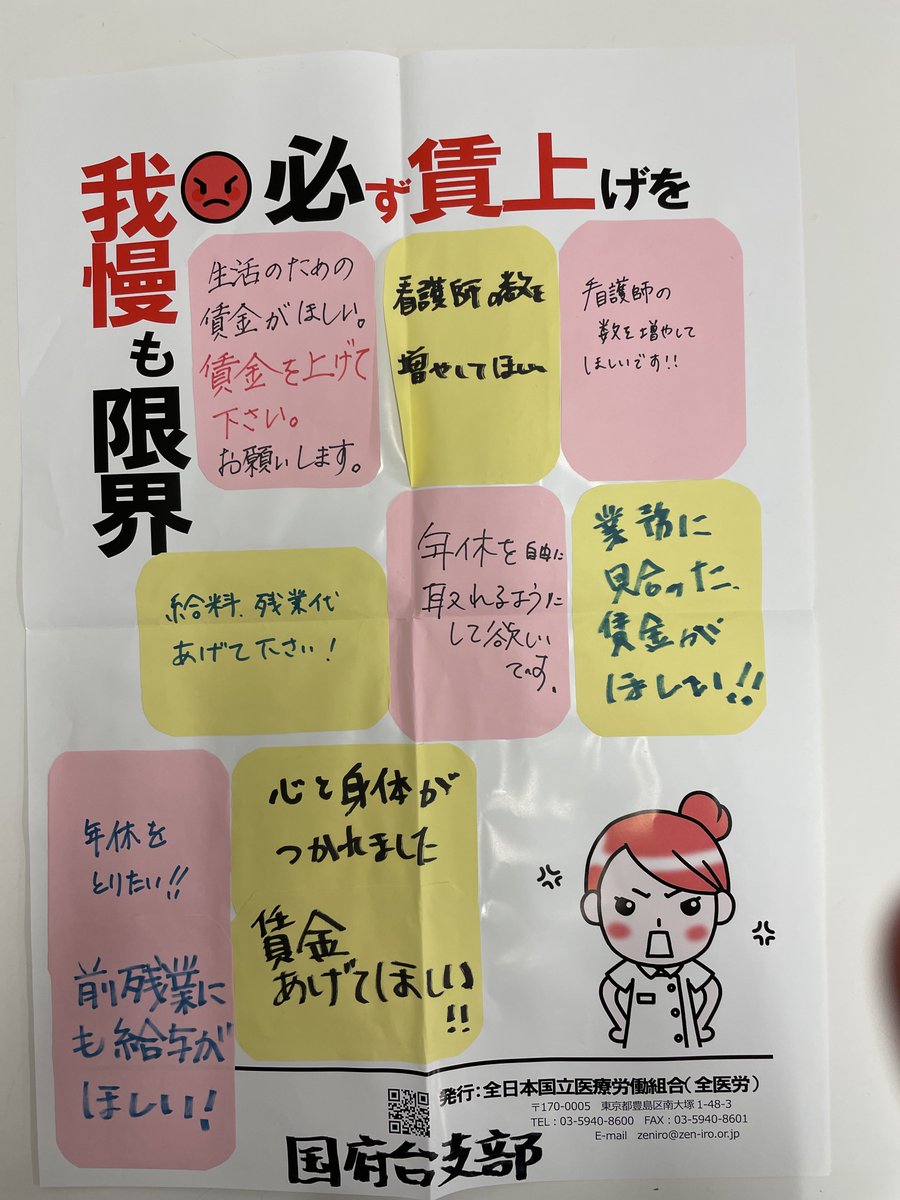 我慢も限界
必ず賃上げを
生活のための
賃金がほしい。
賃金を上げて
下さい。
お願いします。
看護師の数を
増やしてほしい
看護師の
数を増やして
ほしいです!!
給料、残業代
あげて下さい!
年休を自由に
取れるように
して欲しい
です。
業務に
見合った、
賃金が
ほしい!!
年休を
とりたい!!
前残業に
も給与が
ほしい!
心と身体が
つかれました
賃金
あげてほしい
!!
発行:全日本国立医療労働組合(全医労)
〒170-0005 東京都豊島区南大塚1-48-3
TEL:03-5940-8600 FAX:03-5940-8601
E-mail zeniro@zen-iro.or.jp
国府台支部